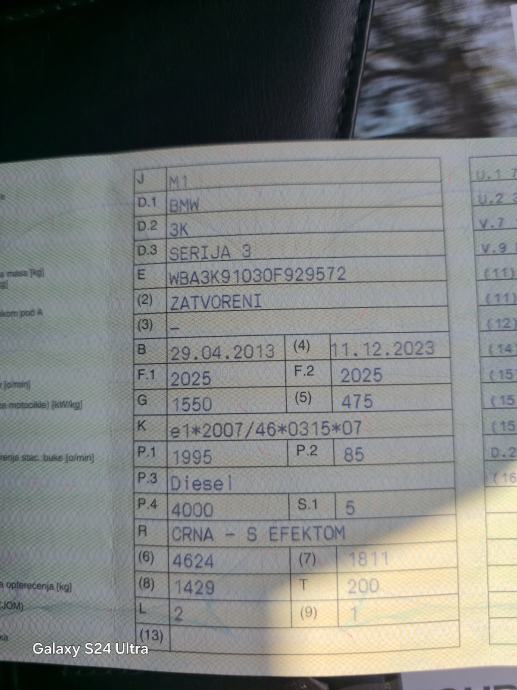 J M1
D.1 BMW
D.2 3K
D.3 SERIJA 3
a masa [kg] E WBA3K91030F929572
(2) ZATVORENI
kom pod A (3) –
B 29.04.2013 (4) 11.12.2023
F.1 2025 F.2 2025
G 1550 (5) 475
motocikle) [kW/kg] K e1*2007/46*0315*07
stac. buke [o/min] P.1 1995 P.2 85
P.3 Diesel
P.4 4000 S.1 5
R CRNA - S EFEKTOM
(6) 4624 (7) 1811
opterećenja [kg] (8) 1429 T 200
L 2 (9) 1
(13)
U.1 7
U.2
V.7
V.9
(11)
(11)
(12)
(14
(15
(15
(15
D.2
(16
Galaxy S24 Ultra